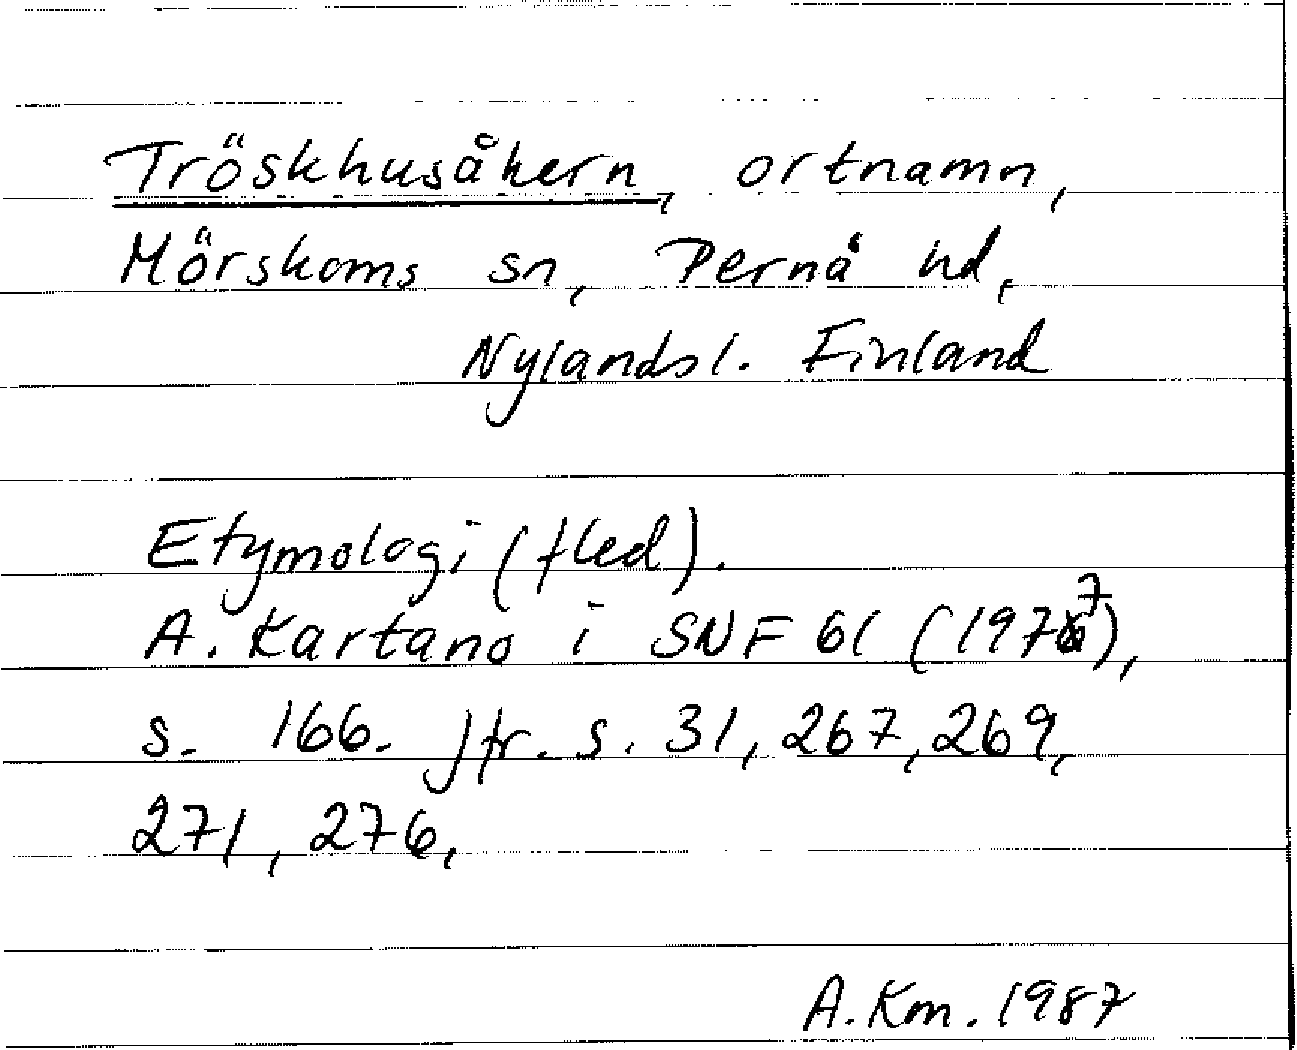 Tröskhusåkern, ortnamn,
Mörskoms sn, Pernå hd,
Nylandsl. Finland
Etymologi (fled).
A. Kartano i SNF 61 (1977),
s. 166. Jfr. s. 31, 267, 269,
271, 276,
A. Km. 1987